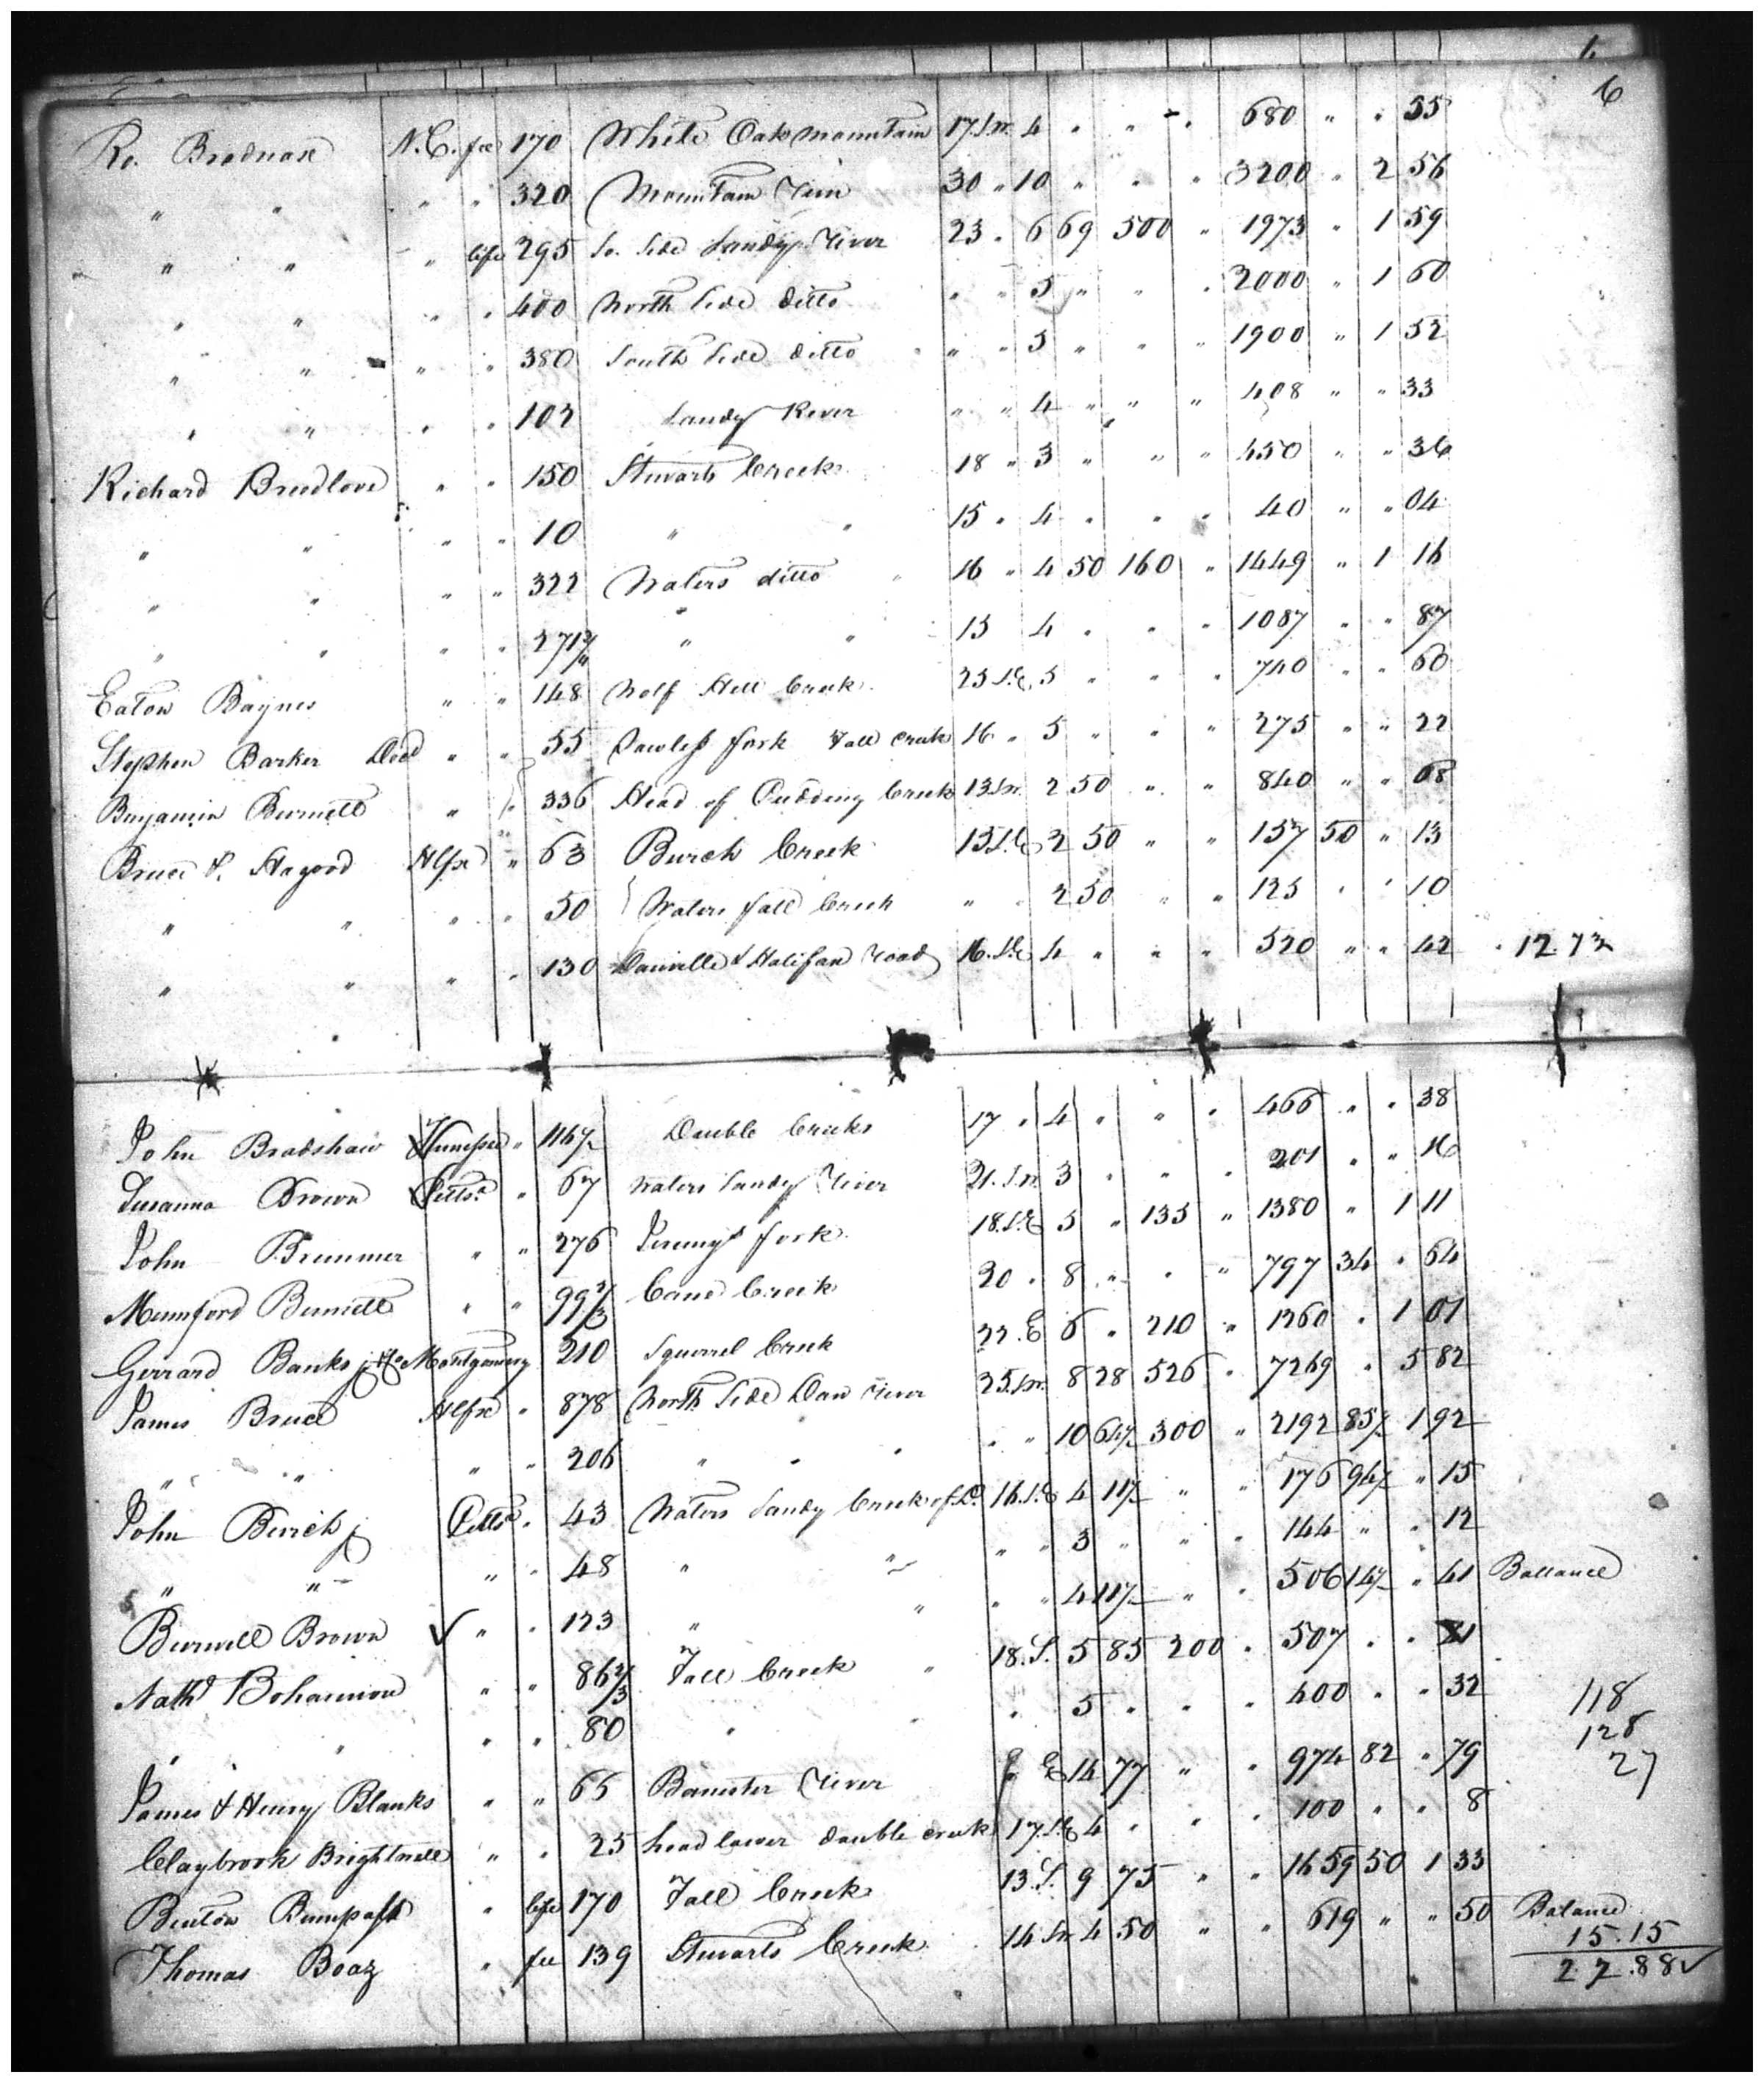 6
Ro. Brodnax N.C. fee 170 White Oak mountain 17 S.W. 4 " " " 680 " " 55
" " " " 320 Mountain Run 30 " 10 " " " 3200 " 2 56
" " " life 295 So. Side Sandy River 23 " 6 69 500 " 1973 " 1 59
" " " " 400 North Side Ditto " " 5 " " " 2000 " 1 60
" " " " 380 South Side Ditto " " 5 " " " 1900 " 1 52
" " " " 102 Sandy River " " 4 " " " 408 " " 33
Richard Breedlove " " 150 Stewarts Creek 18 " 3 " " " 450 " " 36
" " " " 10 " " 15 " 4 " " " 40 " " 04
" " " " 322 Waters ditto 16 " 4 50 160 " 1449 " 1 16
" " " " 271 3/4 " " 13 4 " " " 1087 " " 87
Eaton Baynes " " 148 Wolf Hill Creek 25 S.E. 5 " " " 740 " " 60
Stephen Barker Decd " " 55 fork Fall creek 16 " 5 " " " 275 " " 22
Benjamin Burnett " " 336 Head of Pudding Creek 13 S.W. 2 50 " " 840 " " 68
Bruce & Hagood Hlfx " 63 Burch Creek 15 S.E. 2 50 " " 157 50 " 13
" " " " 50 Waters fall Creek " " 2 50 " " 125 " " 10
" " " " 130 Danville & Halifax Road 16 S.E. 4 " " " 520 " " 42 12.73
John Bradshaw " 116 1/2 Double Creeks 17 " 4 " " " 466 " " 38
Susanna Brown Pittsa " 67 Waters Sandy River 21 S.W. 3 " " " 201 " " 16
John Brummer " " 276 Jennys fork 18 S.E. 5 " 135 " 1380 " 1 11
Mumford Burnett " " 99 2/3 Cane Creek 20 " 8 " " " 797 34 " 64
Gerrard Banks jr Montgomery 210 Squirrel Creek 22 E 6 " 210 " 1260 " 1 01
James Bruce Hlfx " 878 North Side Dan River 25 S.W. 8 28 526 " 7269 " 5 82
" " " " 206 " " " " 10 64 1/2 300 " 2192 85 1/2 1 92
John Burch jr Pittsa " 43 Waters Sandy Creek of D. 16 S.E. 4 11 1/2 " " 176 94 1/2 " 15
" " " " 48 " " " " 3 " " " 144 " " 12
Burwell Brown " " 123 " " " " 4 11 1/2 " " 506 14 1/2 " 41 Ballance
Nathl Bohannon " " 86 2/3 Fall Creek 18 S. 5 85 200 " 507 " "
" " " 80 " " " 5 " " " 400 " " 32 118
128
James & Henry Blanks " " 65 Banister River E 14 77 " " 974 82 " 79 27
Claybrook Brightwell " " 25 head lower double creek 17 S.E. 4 " " " 100 " " 8
Benton Bumpass " life 170 Fall Creek 13 S. 9 75 " " 1659 50 1 33
Thomas Boaz " fee 139 Stewarts Creek 14 S.W. 4 50 " " 619 " " 50 Balance
15.15
27.88